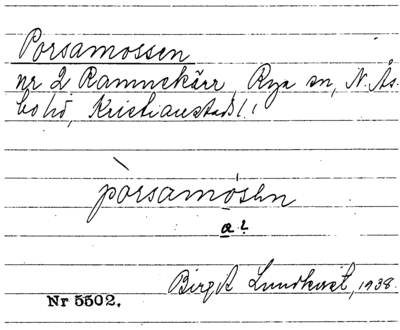 Porsamossen
nr 2 Ramnekärr, Rya sn, N. Ås-
bo hd, Kristianstads l.
pòrsamósən
a?
Birgit Lundkvist, 1938.
Nr 5502.